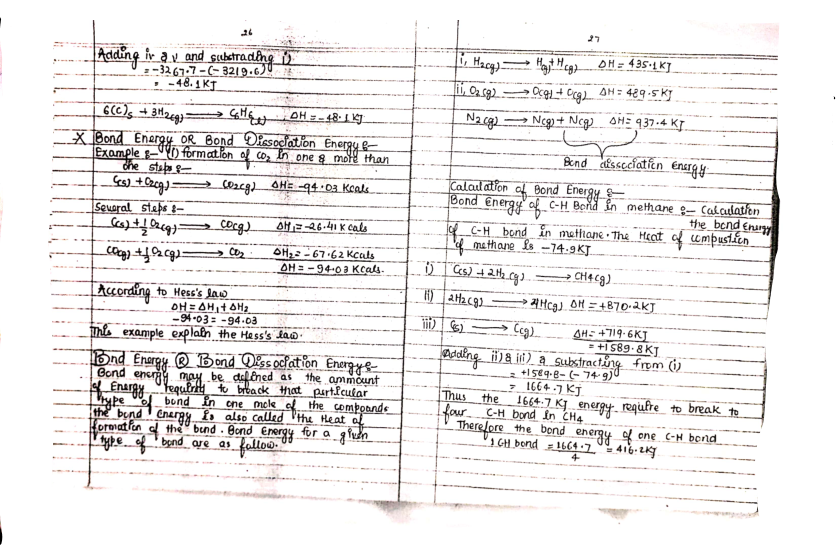 26
Adding iv & v and substrading i)
= -3267.7 - (-3219.6)
= -48.1 KJ
6(C)s + 3H2(g) → C6H6(l) ΔH = -48.1 KJ
X Bond Energy OR Bond Dissociation Energy :-
Example :- (1) formation of CO2 in one & more than
one steps :-
C(s) + O2(g) → CO2(g) ΔH = -94.03 Kcals
Several steps :-
C(s) + 1/2 O2(g) → CO(g) ΔH1 = -26.41 K cals
CO(g) + 1/2 O2(g) → CO2 ΔH2 = -67.62 Kcals
ΔH = -94.03 Kcals.
According to Hess's law
ΔH = ΔH1 + ΔH2
-94.03 = -94.03
This example explain the Hess's law.
Bond Energy (R) Bond Dissociation Energy :-
Bond energy may be defined as the ammount
of Energy required to break that particular
type of bond in one mole of the compounds
the bond energy is also called the Heat of
formation of the bond. Bond Energy for a given
type of bond are as follow.
27
i, H2(g) → H(g) + H(g) ΔH = 435.1 KJ
ii, O2(g) → O(g) + O(g) ΔH = 489.5 KJ
N2(g) → N(g) + N(g) ΔH = 937.4 KJ
Bond dissociation energy
Calculation of Bond Energy :-
Bond Energy of C-H Bond in methane :- Calculation
the bond Energy
of C-H bond in methane. The Heat of compustion
of methane is -74.9 KJ
i) C(s) + 2H2(g) → CH4(g)
ii) 2H2(g) → 4H(g) ΔH = +870.2KJ
iii) C(s) → C(g) ΔH = +719.6KJ
= +1589.8KJ
Adding ii) & iii) & substracting from (i)
= +1589.8 - (-74.9)
= 1664.7 KJ
Thus the 1664.7 KJ energy require to break to
four C-H bond in CH4
Therefore the bond energy of one C-H bond
1 CH bond = 1664.7/4 = 416.2KJ